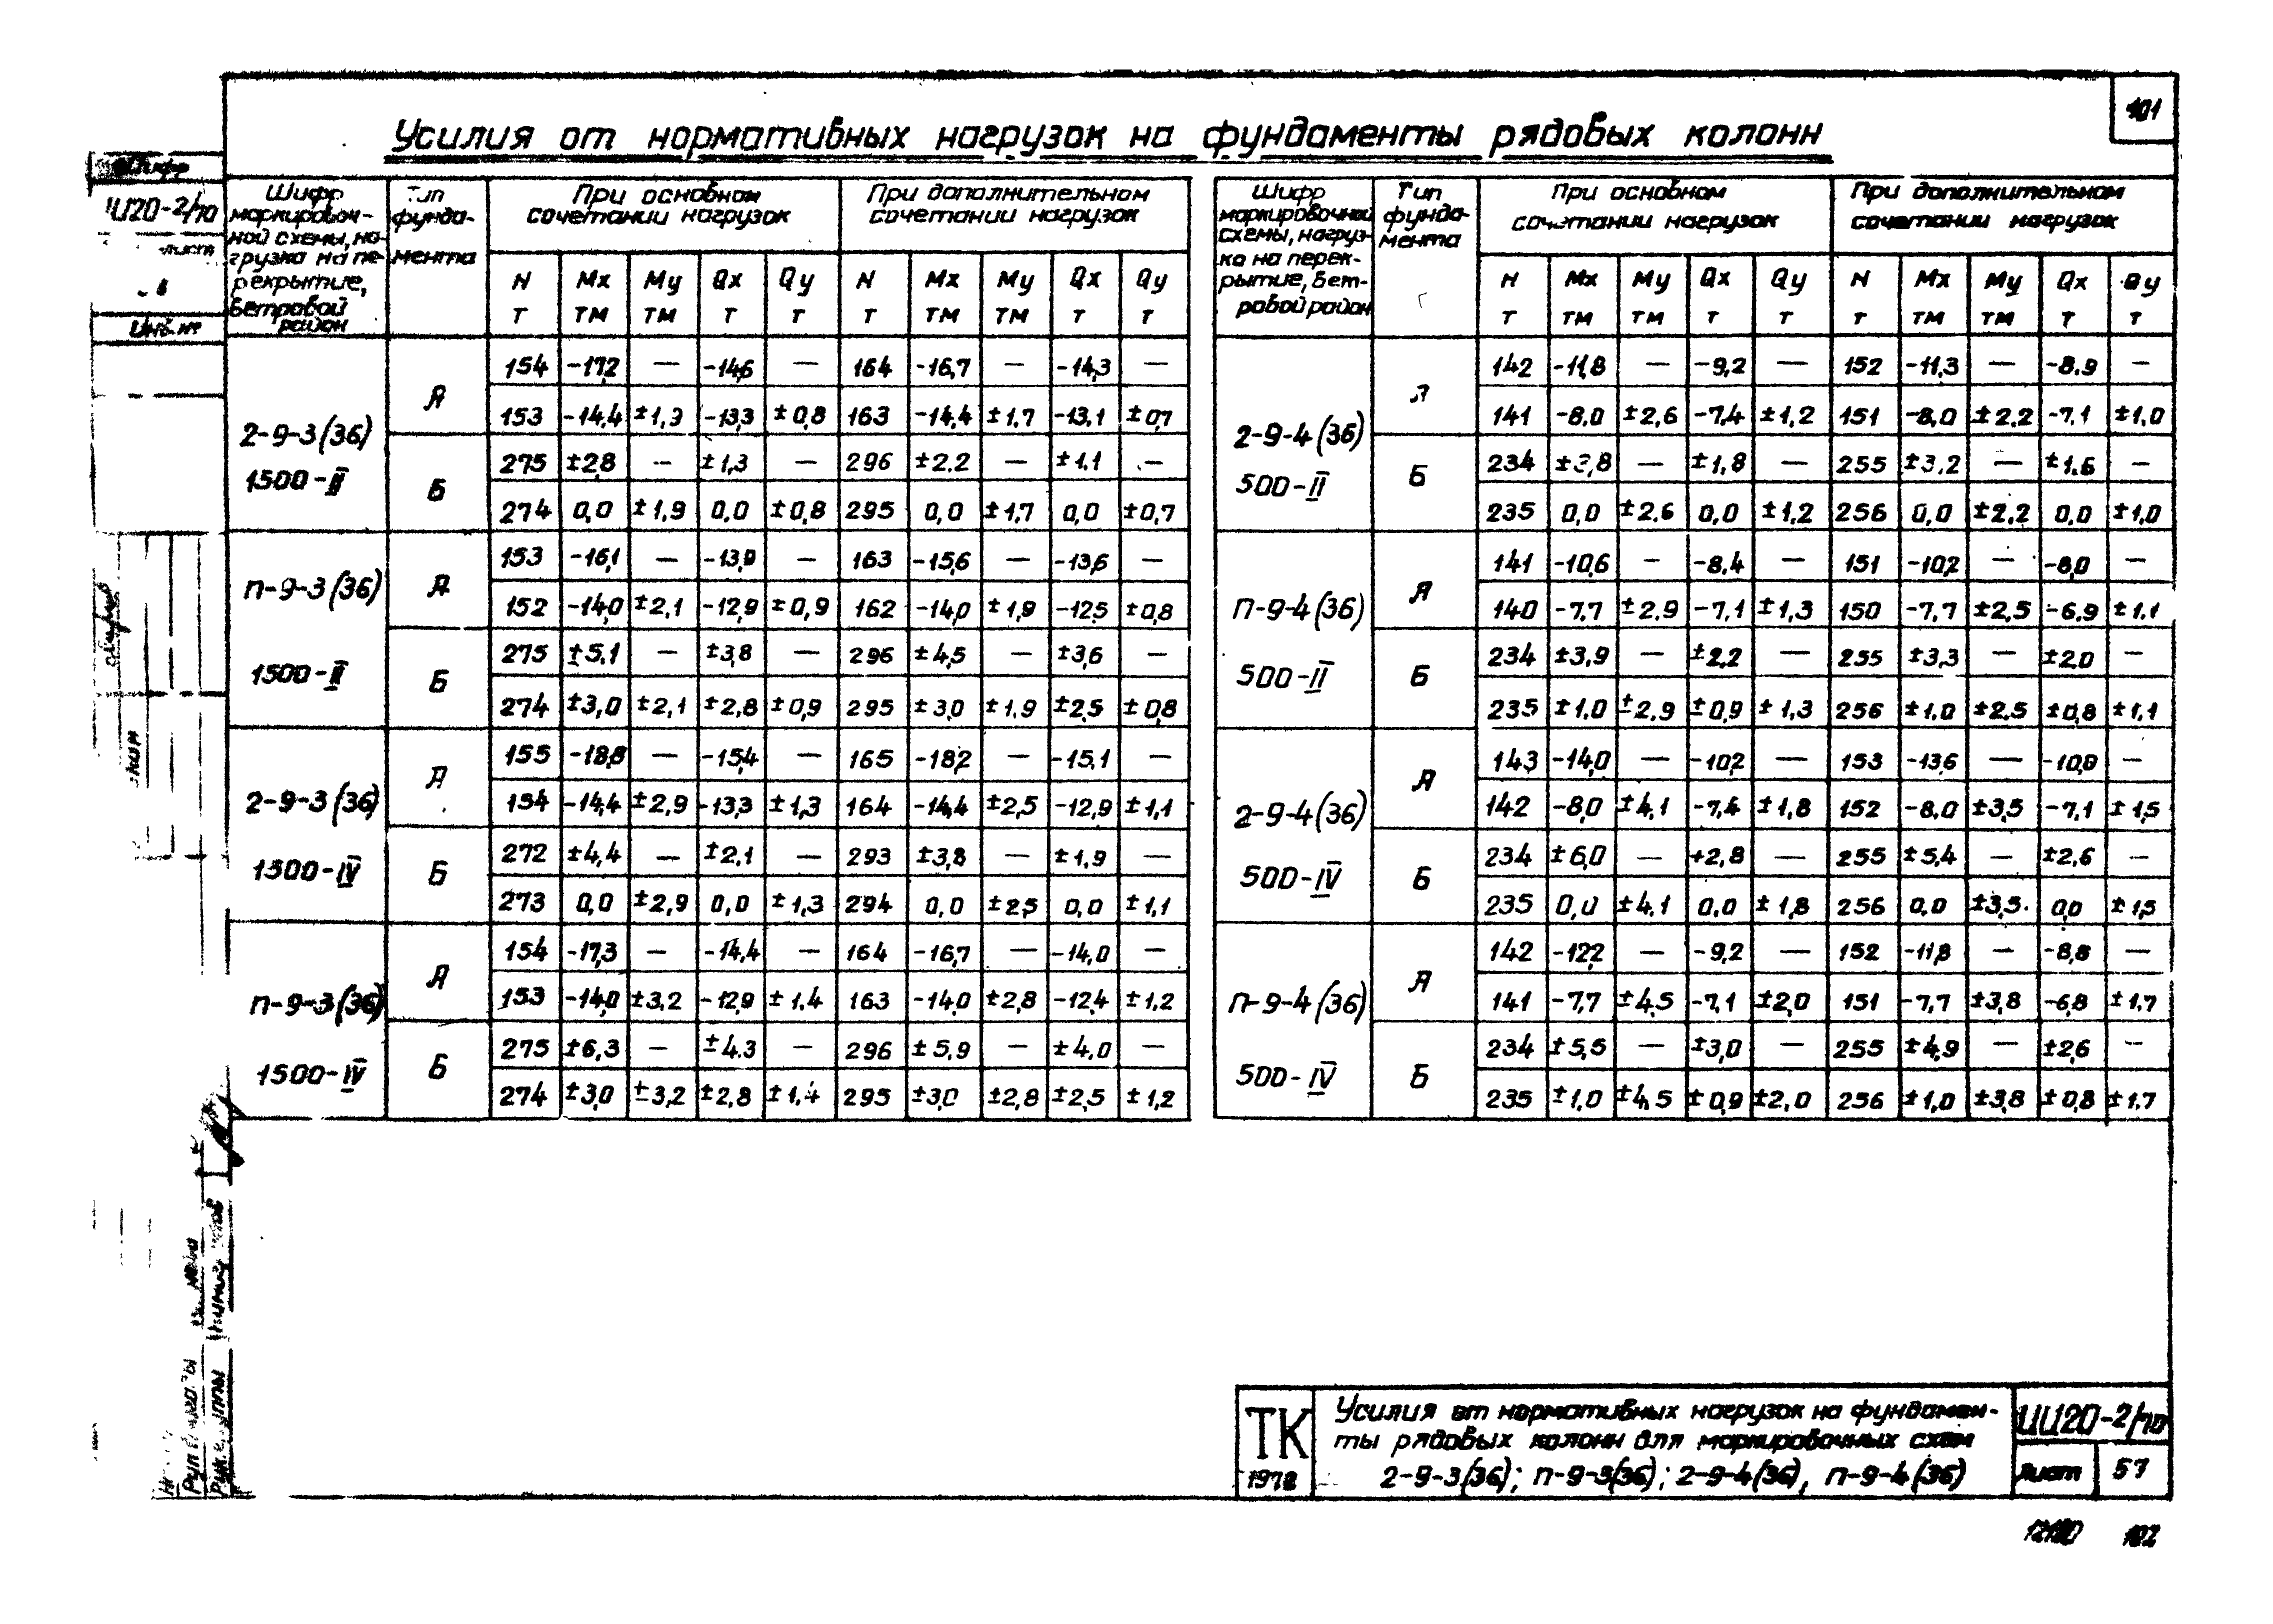 101
Усилия от нормативных нагрузок на фундаменты рядовых колонн
Шифр маркировоч-ной схемы, на-грузка на пе-рекрытие, ветровой район | Тип фунда-мента | При основном сочетании нагрузок | При дополнительном сочетании нагрузок
N Mx My Qx Qy N Mx My Qx Qy
т тм тм т т т тм тм т т
2-9-3(36) 1500-II
А
154 -17,2 — -14,6 — 164 -16,7 — -14,3 —
153 -14,4 ±1,9 -13,3 ±0,8 163 -14,4 ±1,7 -13,1 ±0,7
Б
275 ±2,8 — ±1,3 — 296 ±2,2 — ±1,1 —
274 0,0 ±1,9 0,0 ±0,8 295 0,0 ±1,7 0,0 ±0,7
П-9-3(36) 1500-II
А
153 -16,1 — -13,9 — 163 -15,6 — -13,6 —
152 -14,0 ±2,1 -12,9 ±0,9 162 -14,0 ±1,9 -12,5 ±0,8
Б
275 ±5,1 — ±3,8 — 296 ±4,5 — ±3,6 —
274 ±3,0 ±2,1 ±2,8 ±0,9 295 ±3,0 ±1,9 ±2,5 ±0,8
2-9-3(36) 1500-IV
А
155 -18,8 — -15,4 — 165 -18,2 — -15,1 —
154 -14,4 ±2,9 -13,3 ±1,3 164 -14,4 ±2,5 -12,9 ±1,1
Б
272 ±4,4 — ±2,1 — 293 ±3,8 — ±1,9 —
273 0,0 ±2,9 0,0 ±1,3 294 0,0 ±2,5 0,0 ±1,1
П-9-3(36) 1500-IV
А
154 -17,3 — -14,4 — 164 -16,7 — -14,0 —
153 -14,0 ±3,2 -12,9 ±1,4 163 -14,0 ±2,8 -12,4 ±1,2
Б
275 ±6,3 — ±4,3 — 296 ±5,9 — ±4,0 —
274 ±3,0 ±3,2 ±2,8 ±1,4 295 ±3,0 ±2,8 ±2,5 ±1,2
Шифр маркировочной схемы, нагруз-ка на перек-рытие, вет-ровой район | Тип фунда-мента | При основном сочетании нагрузок | При дополнительном сочетании нагрузок
N Mx My Qx Qy N Mx My Qx Qy
т тм тм т т т тм тм т т
2-9-4(36) 500-II
А
142 -11,8 — -9,2 — 152 -11,3 — -8,9 —
141 -8,0 ±2,6 -7,4 ±1,2 151 -8,0 ±2,2 -7,1 ±1,0
Б
234 ±3,8 — ±1,8 — 255 ±3,2 — ±1,6 —
235 0,0 ±2,6 0,0 ±1,2 256 0,0 ±2,2 0,0 ±1,0
П-9-4(36) 500-II
А
141 -10,6 — -8,4 — 151 -10,2 — -8,0 —
140 -7,7 ±2,9 -7,1 ±1,3 150 -7,7 ±2,5 -6,9 ±1,1
Б
234 ±3,9 — ±2,2 — 255 ±3,3 — ±2,0 —
235 ±1,0 ±2,9 ±0,9 ±1,3 256 ±1,0 ±2,5 ±0,8 ±1,1
2-9-4(36) 500-IV
А
143 -14,0 — -10,2 — 153 -13,6 — -10,0 —
142 -8,0 ±4,1 -7,4 ±1,8 152 -8,0 ±3,5 -7,1 ±1,5
Б
234 ±6,0 — +2,8 — 255 ±5,4 — ±2,6 —
235 0,0 ±4,1 0,0 ±1,8 256 0,0 ±3,5 0,0 ±1,5
П-9-4(36) 500-IV
А
142 -12,2 — -9,2 — 152 -11,8 — -8,8 —
141 -7,7 ±4,5 -7,1 ±2,0 151 -7,7 ±3,8 -6,8 ±1,7
Б
234 ±5,5 — ±3,0 — 255 ±4,9 — ±2,6 —
235 ±1,0 ±4,5 ±0,9 ±2,0 256 ±1,0 ±3,8 ±0,8 ±1,7
Шифр
ИИ20-2/70
лист
Инв. №
ТК
1978
Усилия от нормативных нагрузок на фундамен-
ты рядовых колонн для маркировочных схем
2-9-3(36); П-9-3(36); 2-9-4(36), П-9-4(36)
ИИ20-2/70
Лист 57
102